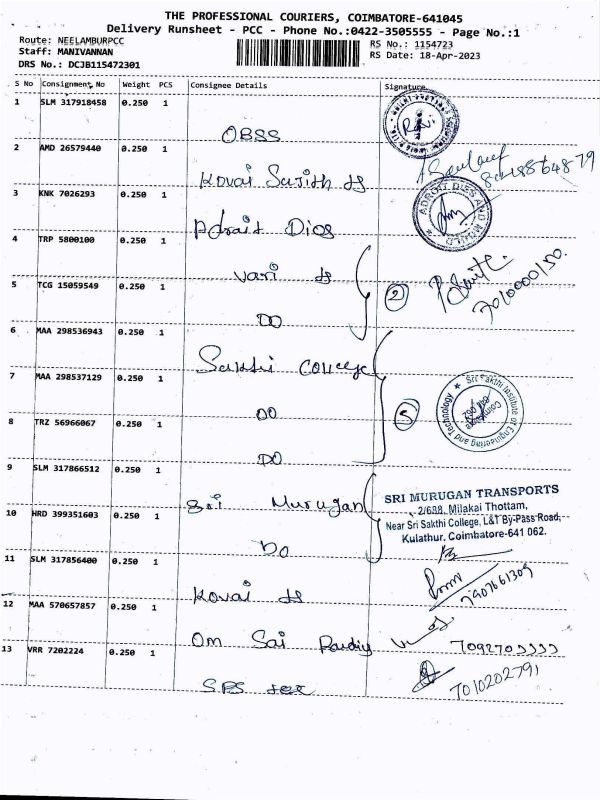 THE PROFESSIONAL COURIERS, COIMBATORE-641045
Delivery Runsheet - PCC - Phone No.:0422-3505555 - Page No.:1
Route: NEELAMBURPCC
Staff: MANIVANNAN
DRS No.: DCJB115472301
RS No.: 1154723
RS Date: 18-Apr-2023
S No Consignment No Weight PCS Consignee Details Signature
1 SLM 317918458 0.250 1
OBSS
2 AMD 26579440 0.250 1
Kovai Sajith
3 KNK 7026293 0.250 1
Adroit Dies
ADROIT DIES AND MOULD
4 TRP 5800100 0.250 1
Vari
2
5 TCG 15059549 0.250 1
DO
6 MAA 298536943 0.250 1
Sakthi College
7 MAA 298537129 0.250 1
DO
5
Sri Sakthi Institute of Engineering and Technology
Coimbatore 641 062
8 TRZ 56966067 0.250 1
DO
9 SLM 317866512 0.250 1
Sri Murugan
SRI MURUGAN TRANSPORTS
2/688, Milakai Thottam,
Near Sri Sakthi College, L&T By-Pass Road,
Kulathur, Coimbatore-641 062.
10 HRD 399351603 0.250 1
DO
11 SLM 317856400 0.250 1
Kovai
7907661309
12 MAA 570657857 0.250 1
Om Sai
13 VRR 7202224 0.250 1
SPS
7010202791